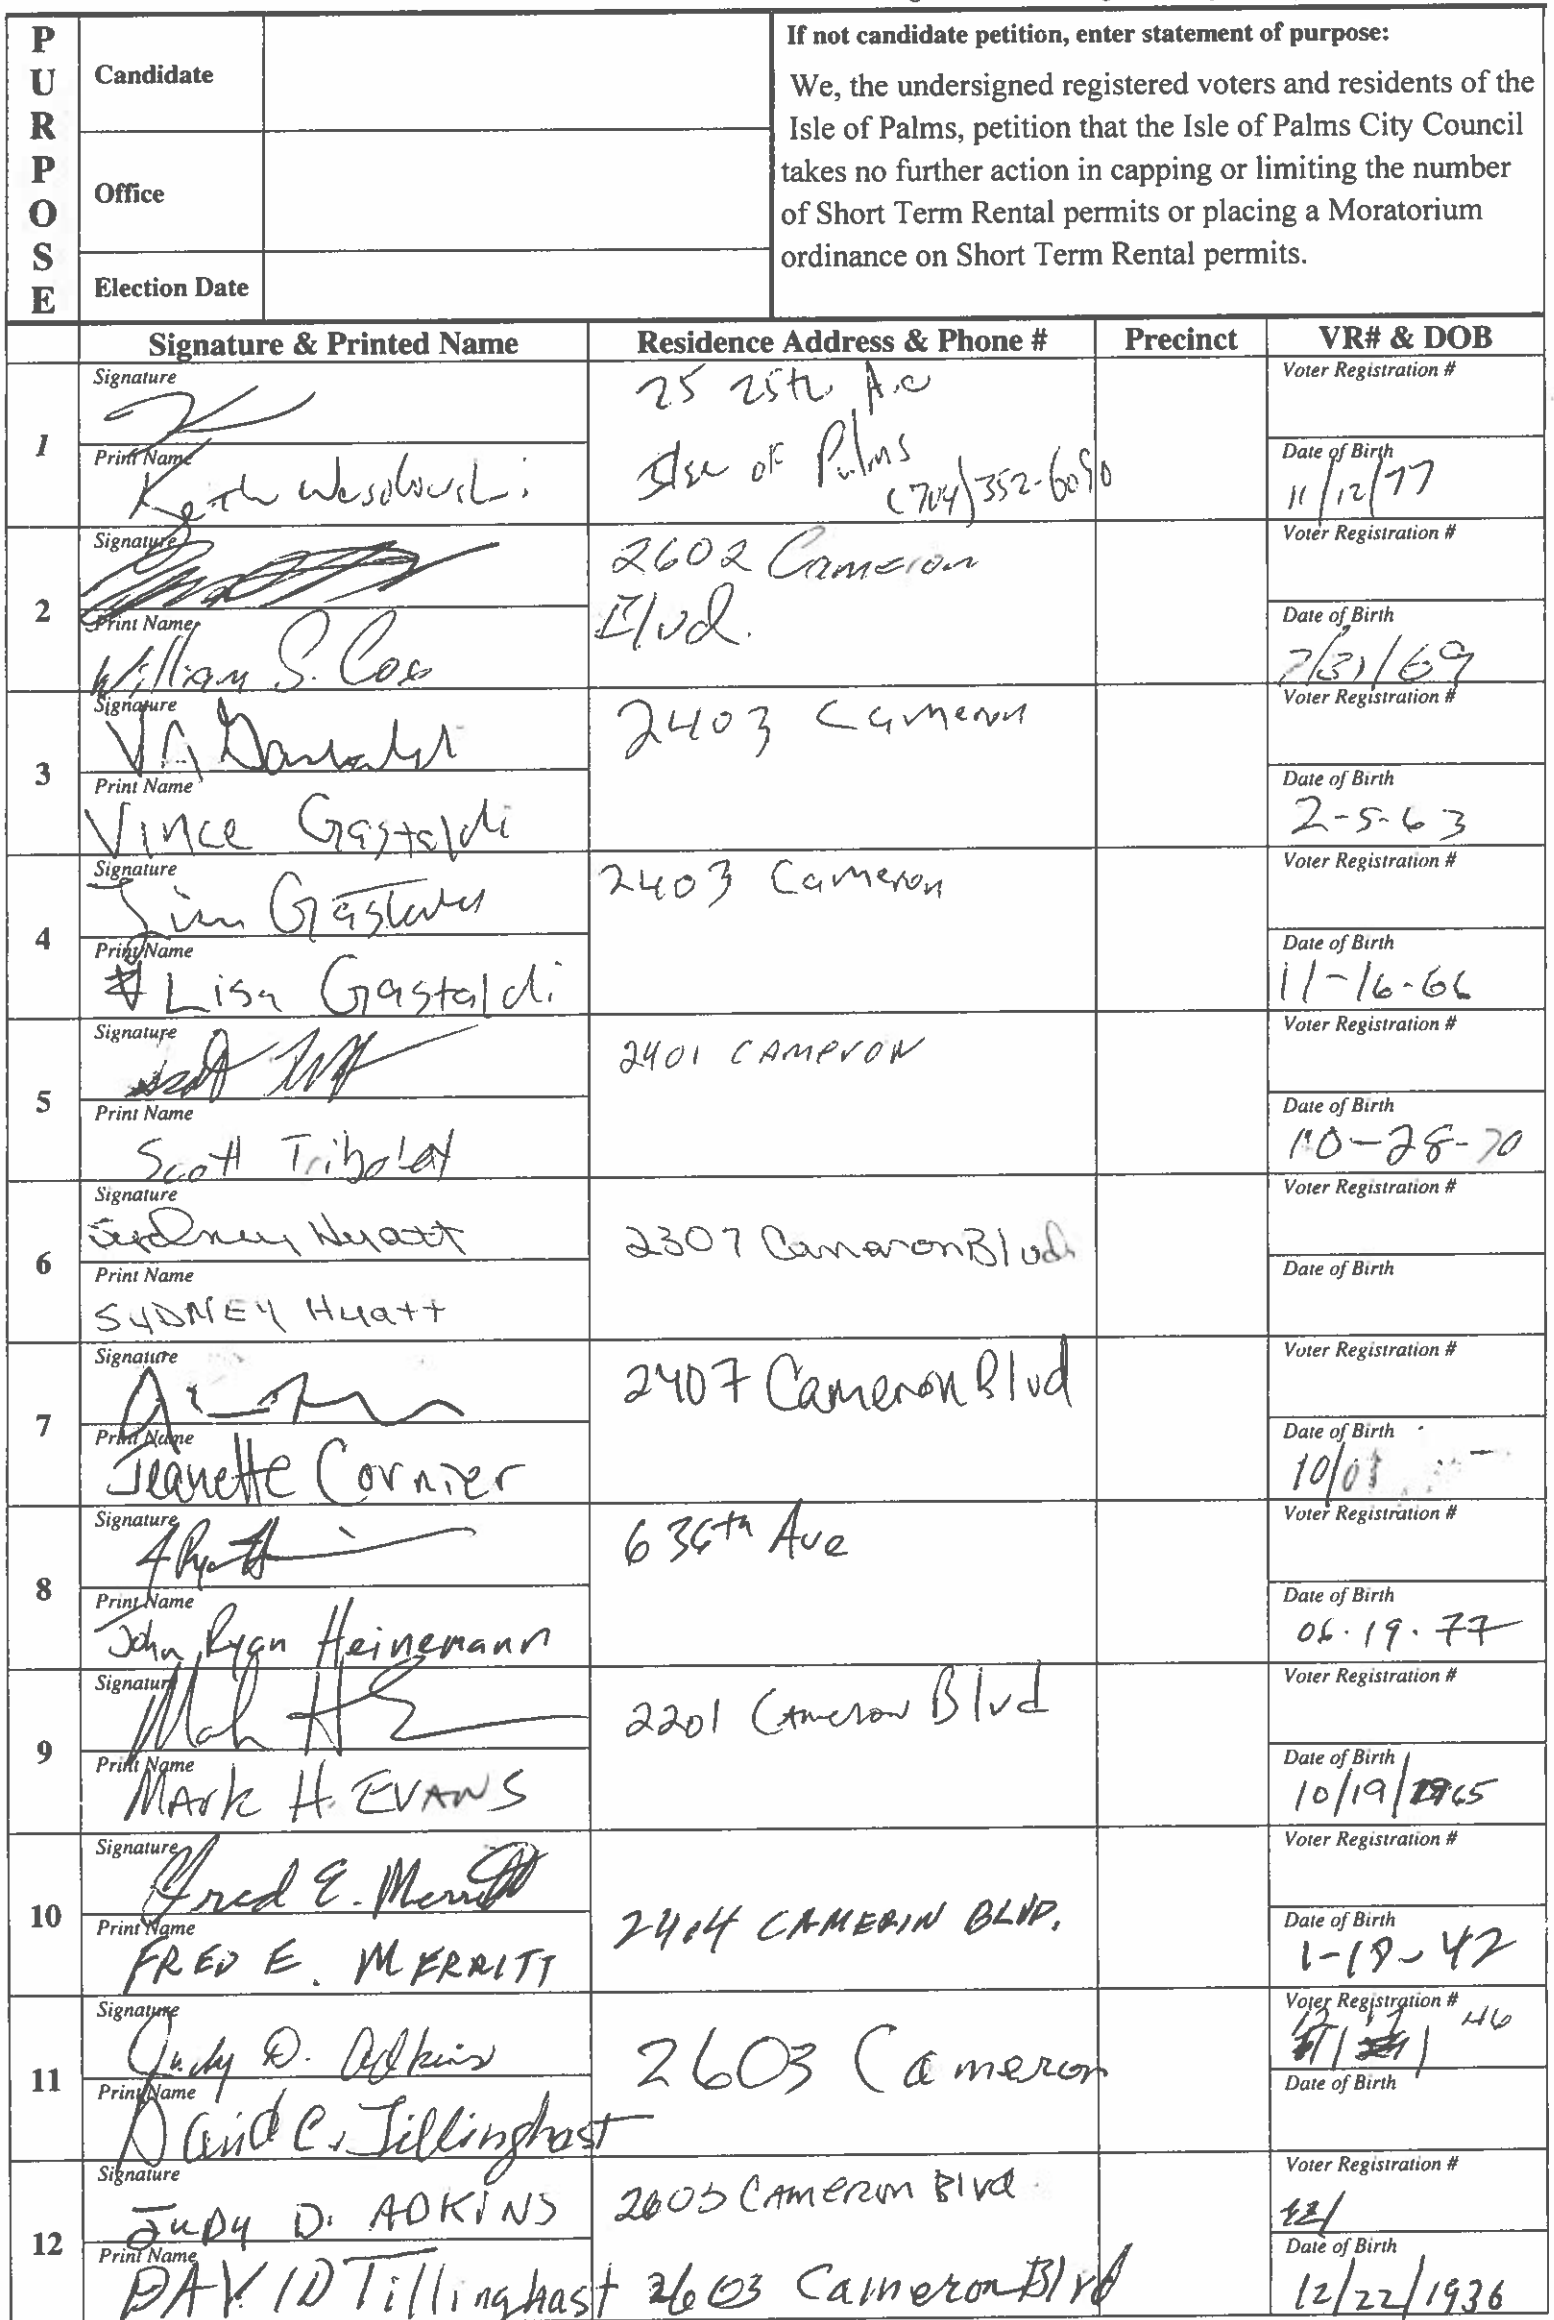 PURPOSE
Candidate
Office
Election Date
If not candidate petition, enter statement of purpose:
We, the undersigned registered voters and residents of the
Isle of Palms, petition that the Isle of Palms City Council
takes no further action in capping or limiting the number
of Short Term Rental permits or placing a Moratorium
ordinance on Short Term Rental permits.
Signature & Printed Name Residence Address & Phone # Precinct VR# & DOB
1
Signature
Print Name
Keith Wesolowski
25 25th Ave
Isle of Palms
(704) 352-6090
Voter Registration #
Date of Birth
11/12/77
2
Signature
Print Name
William S. Cox
2602 Cameron
Blvd.
Voter Registration #
Date of Birth
7/31/69
3
Signature
V A Gastaldi
Print Name
Vince Gastaldi
2403 Cameron
Voter Registration #
Date of Birth
2-5-63
4
Signature
Gastaldi
Print Name
Lisa Gastaldi
2403 Cameron
Voter Registration #
Date of Birth
11-16-66
5
Signature
Print Name
Scott Tribolet
2401 CAMERON
Voter Registration #
Date of Birth
10-28-70
6
Signature
Sydney Hyatt
Print Name
SYDNEY Hyatt
2307 Cameron Blvd
Voter Registration #
Date of Birth
7
Signature
Print Name
Jeanette Cornier
2407 Cameron Blvd
Voter Registration #
Date of Birth
10/01
8
Signature
Print Name
John Ryan Heinemann
6 36th Ave
Voter Registration #
Date of Birth
06.19.77
9
Signature
Mark H E
Print Name
MARK H. EVANS
2201 Cameron Blvd
Voter Registration #
Date of Birth
10/19/1965
10
Signature
Fred E. Merritt
Print Name
FRED E. MERRITT
2404 CAMERIN BLVD.
Voter Registration #
Date of Birth
1-18-42
11
Signature
Judy D. Adkins
Print Name
David C. Tillinghast
2603 Cameron
Voter Registration #
12 17 46
Date of Birth
12
Signature
JUDY D. ADKINS
Print Name
DAVID Tillinghast
2603 CAMERON Blvd
2603 Cameron Blvd
Voter Registration #
Date of Birth
12/22/1936